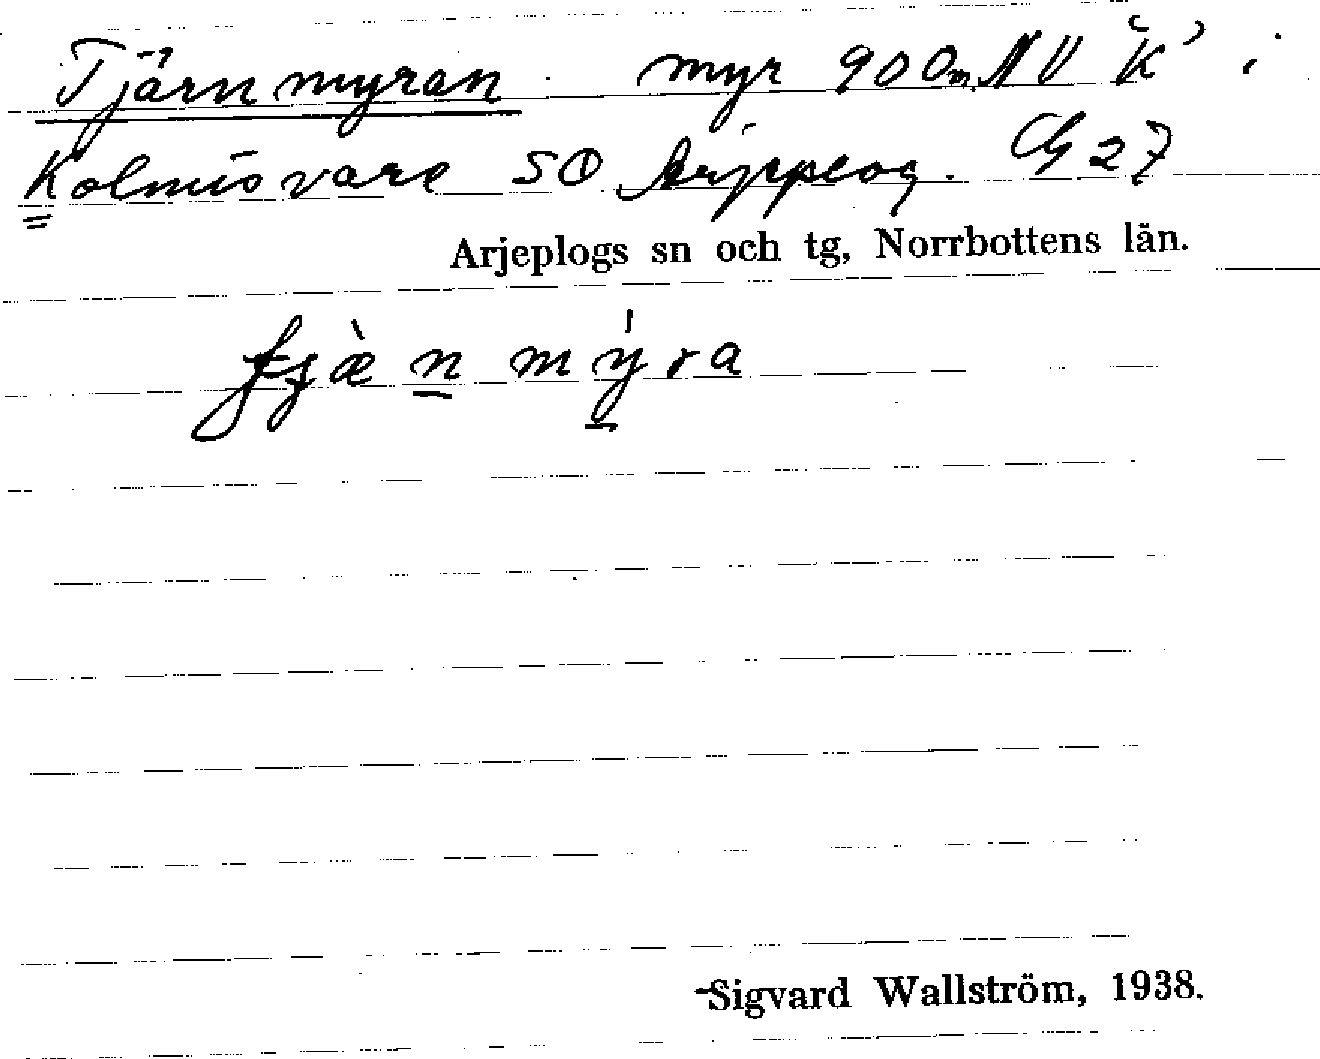 Tjärnmyran myr 900m NV K' i
Kolmisvare SO Arjeplog. G 27
Arjeplogs sn och tg, Norrbottens län.
mýra
Sigvard Wallström, 1938.